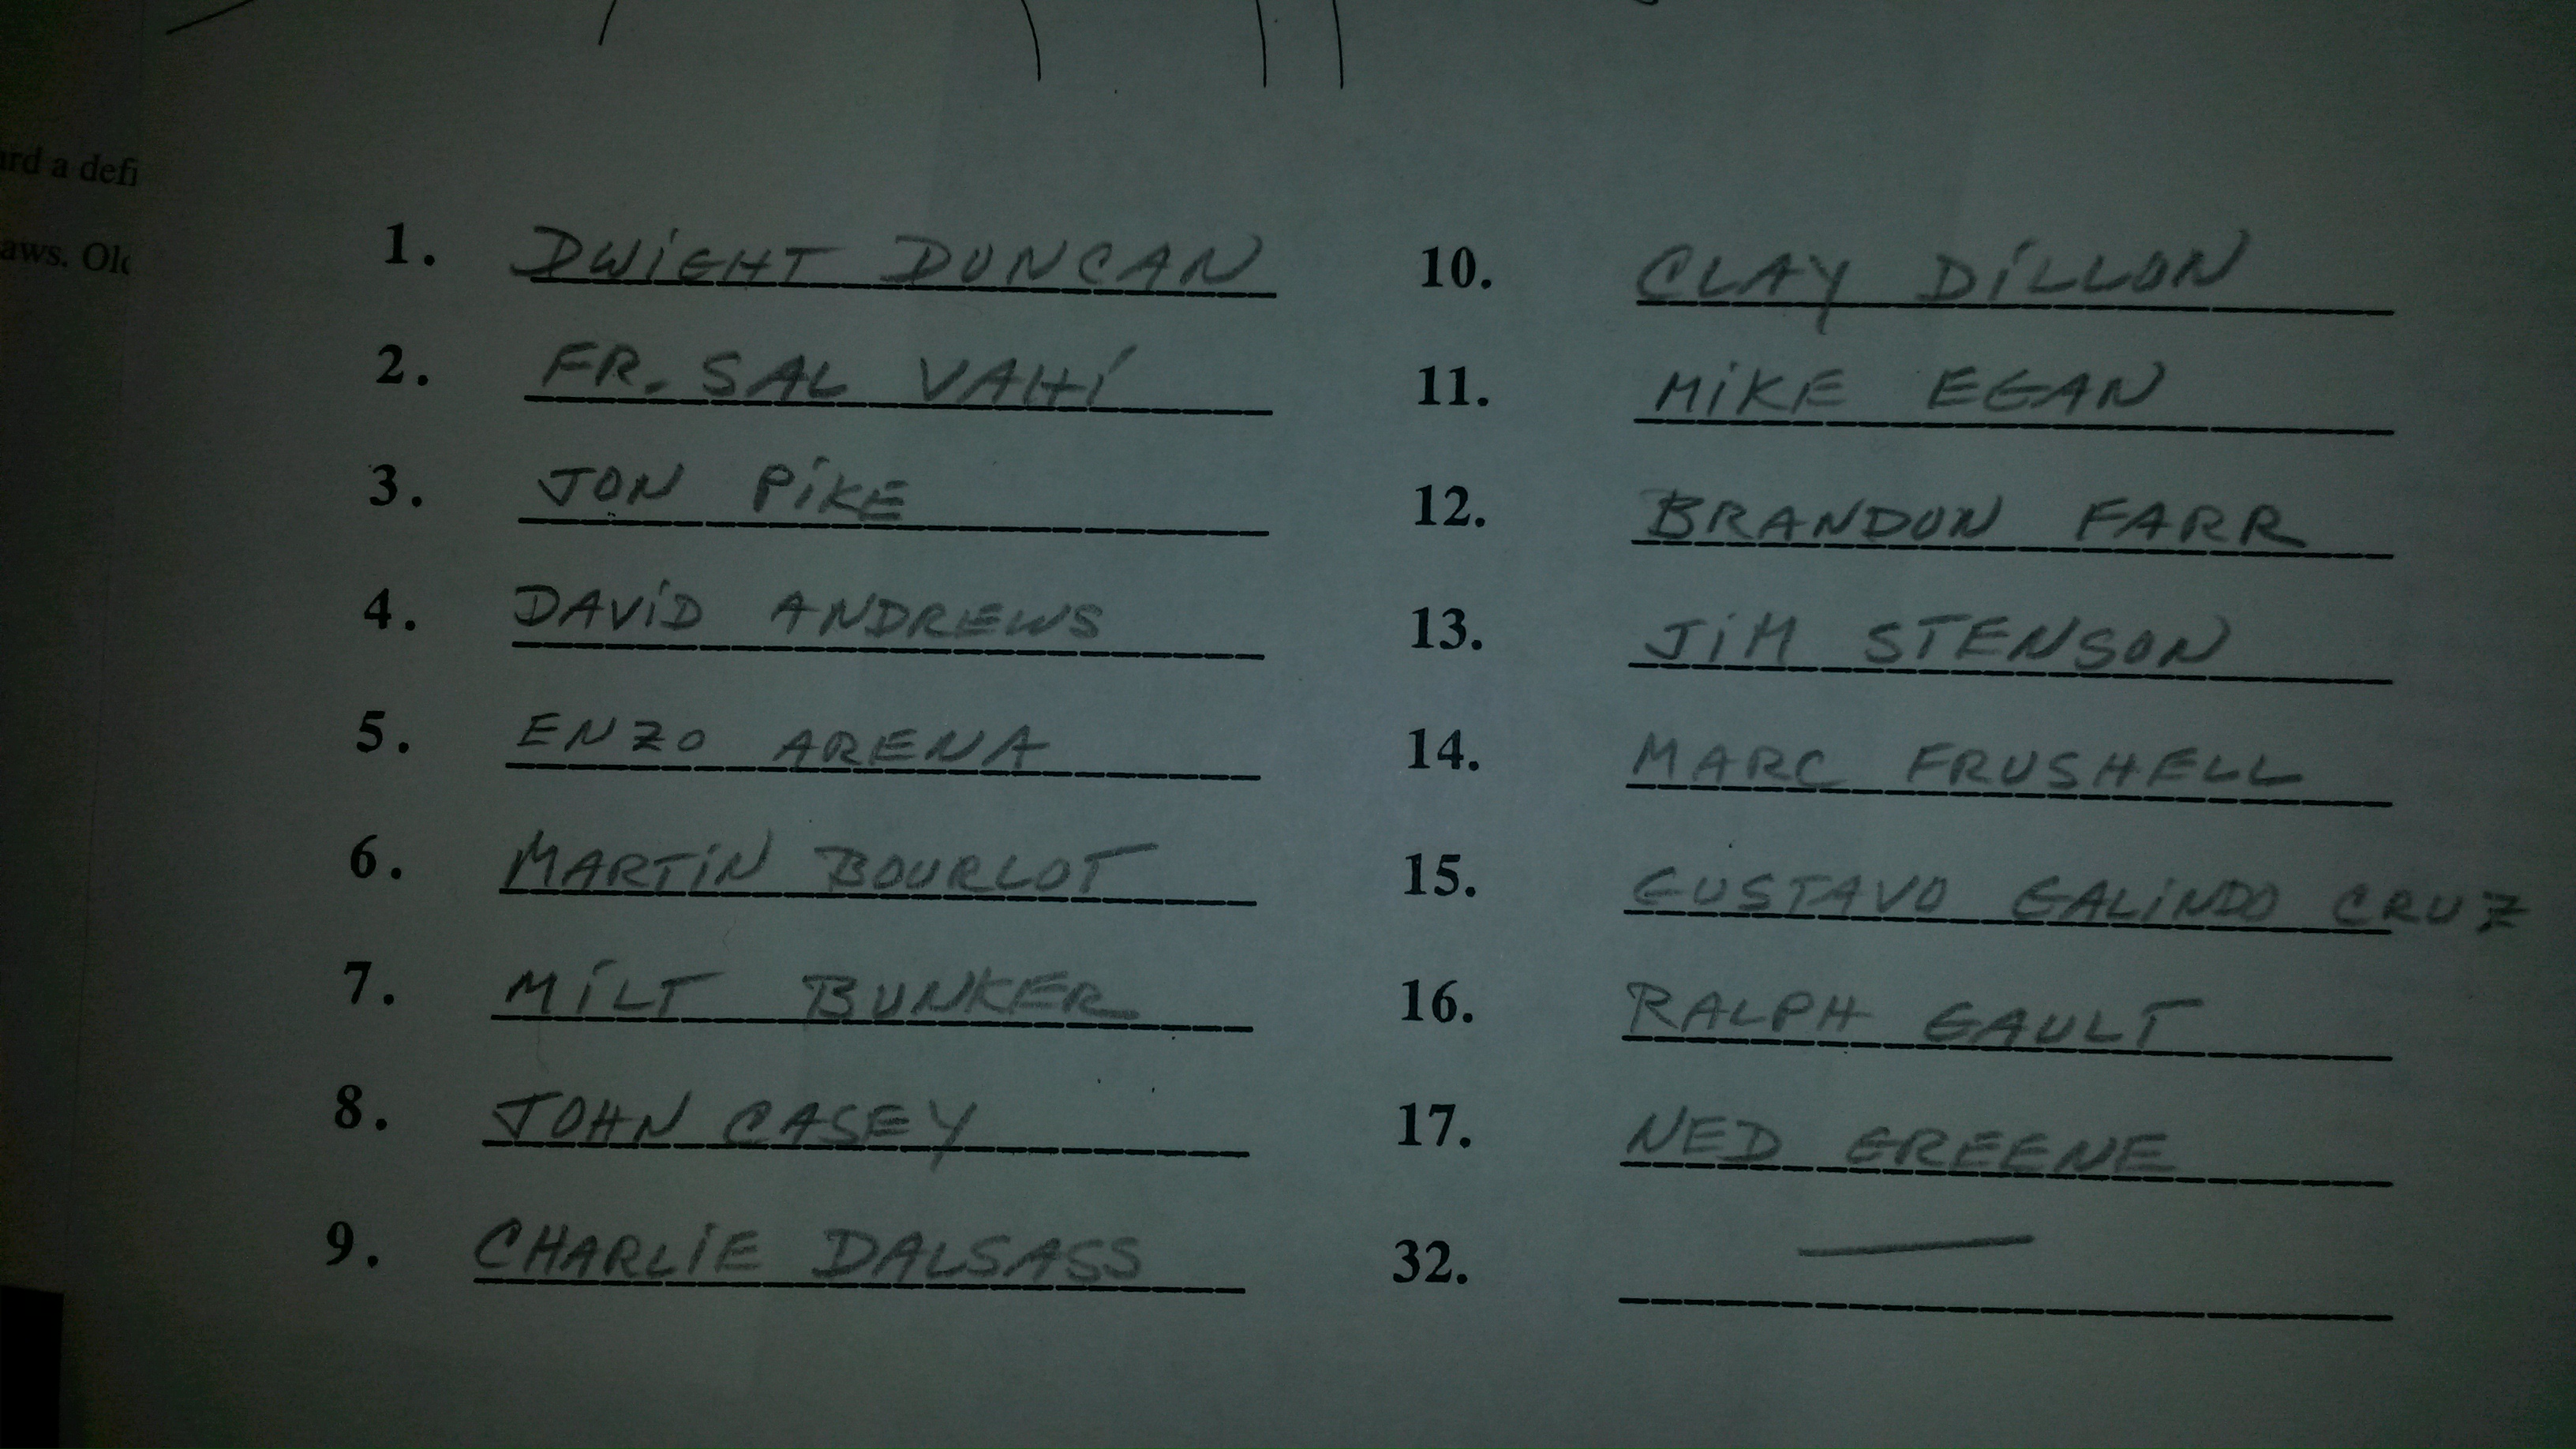 ard a defi
aws. Old
1. DWiGHT DUNCAN
2. FR. SAL VAHi
3. JON PiKE
4. DAViD ANDREWS
5. ENZO ARENA
6. MARTiN BOURLOT
7. MiLT BUNKER
8. JOHN CASEY
9. CHARLiE DALSASS
10. CLAY DiLLON
11. MiKE EGAN
12. BRANDON FARR
13. JiM STENSON
14. MARC FRUSHELL
15. GUSTAVO GALiNDO CRUZ
16. RALPH GAULT
17. NED GREENE
32. —